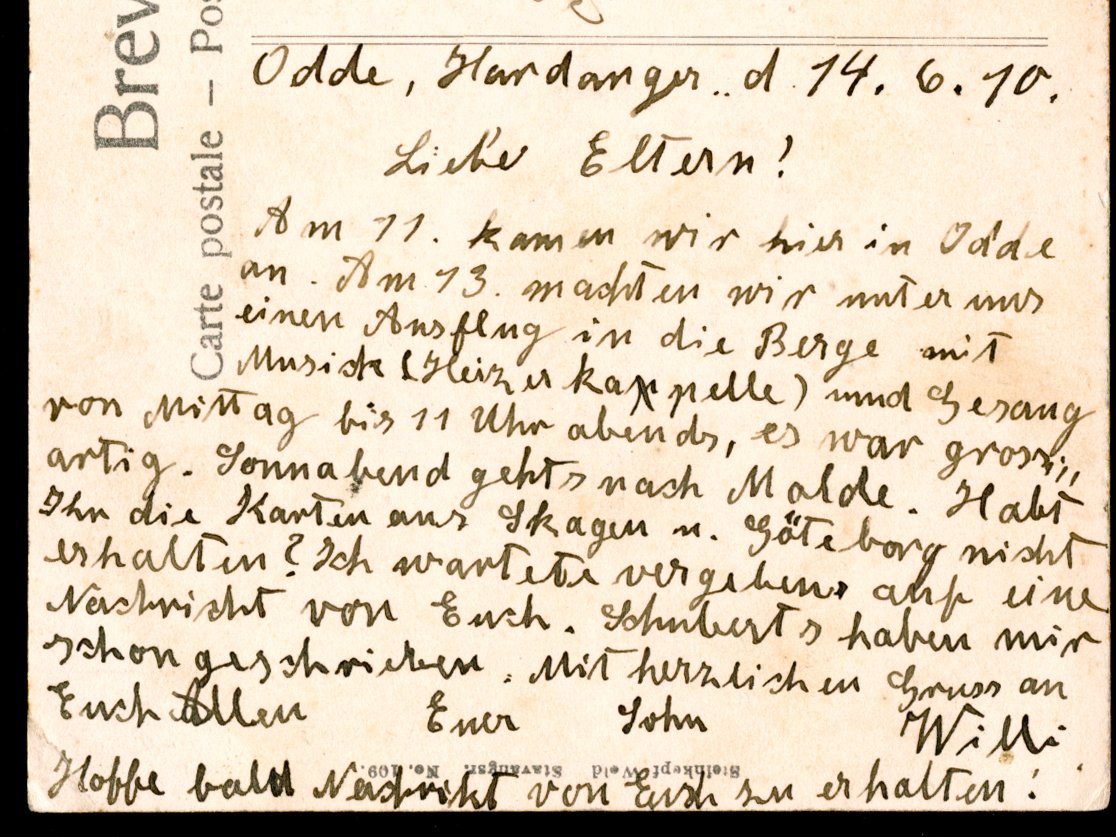 Brev
Carte postale – Pos
Odde, Hardanger d. 14. 6. 10.
Liebe Eltern!
Am 11. kamen wir hier in Odde
an. Am 13. machten wir unter uns
einen Ausflug in die Berge mit
Musick (Heizerkappelle) und Gesang
von Mittag bis 11 Uhr abends, es war gross-
artig. Sonnabend gehts nach Molde. Habt
Ihr die Karten aus Skagen u. Göteborg nicht
erhalten? Ich wartete vergebens auf eine
Nachricht von Euch. Schuberts haben mir
schon geschrieben. Mit herzlichen Gruss an
Euch Allen Euer Sohn Willi.
Steinkepf Weld Stavangsr. No. 109.
Hoffe bald Nachricht von Euch zu erhalten!